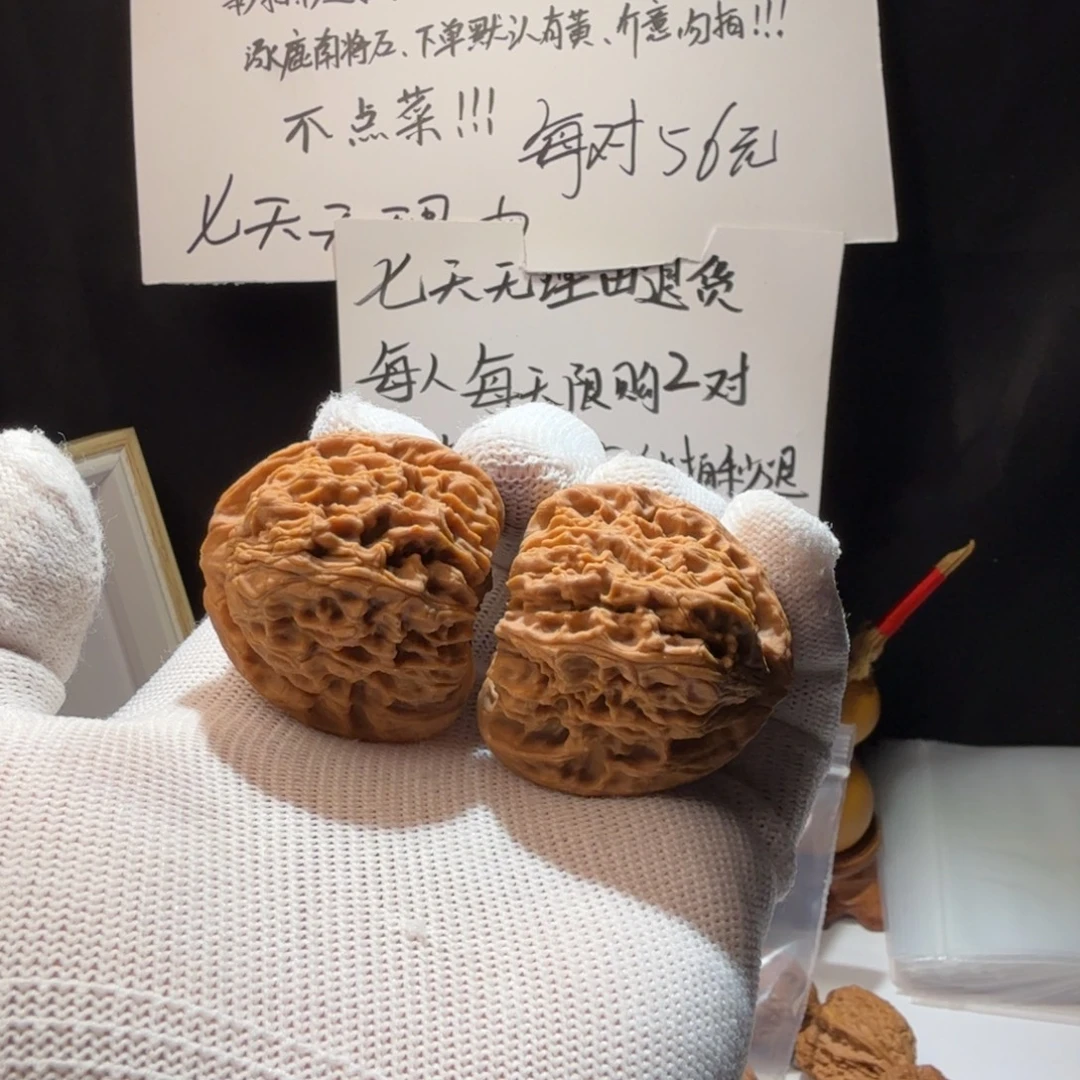 涿鹿南将石、下单默认有黄、介意勿拍!!!
不点菜!!!
每对56元
七天无理由
七天无理由退货
每人每天限购2对
拍秒退